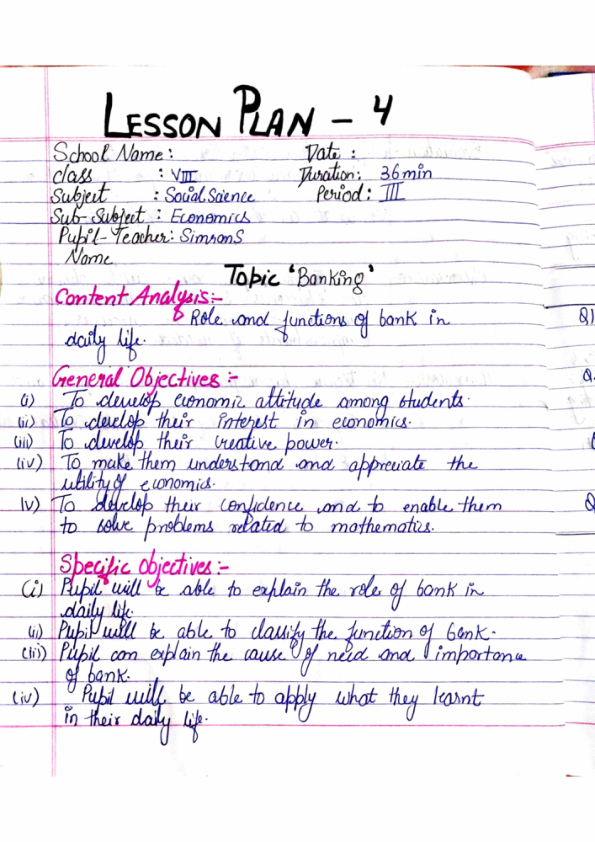 LESSON PLAN - 4
School Name: Date :
Class : VIII Duration: 36 min
Subject : Social Science Period: III
Sub-Subject : Economics
Pupil-Teacher: Simrans
Name
Topic 'Banking'
Content Analysis:-
Role and functions of bank in
daily life.
Q1
General Objectives :-
Q.
(i) To develop economic attitude among students.
(ii) To develop their interest in economics.
(iii) To develop their creative power.
(iv) To make them understand and appreciate the
utility of economics.
(v) To develop their confidence and to enable them
Q
to solve problems related to mathematics.
Specific Objectives :-
(i) Pupil will be able to explain the role of bank in
daily life.
(ii) Pupil will be able to classify the function of bank.
(iii) Pupil can explain the cause of need and importance
of bank.
(iv) Pupil will be able to apply what they learnt
in their daily life.